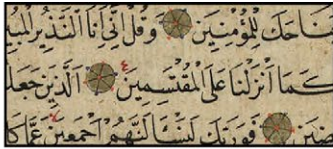 ناحك للمؤمنين ۝ وقل اني انا النذير المبين
كما انزلنا على المقتسمين ۝ الذين جعلو
ضين ۝ فوربك لنسألنهم اجمعين عما كا